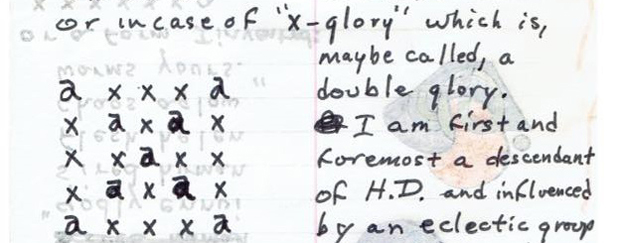 or in case of "x-glory" which is,
maybe called, a
double glory.
I am first and
foremost a descendant
of H.D. and influenced
by an eclectic group
a x x x a
x a x a x
x x a x x
x a x a x
a x x x a